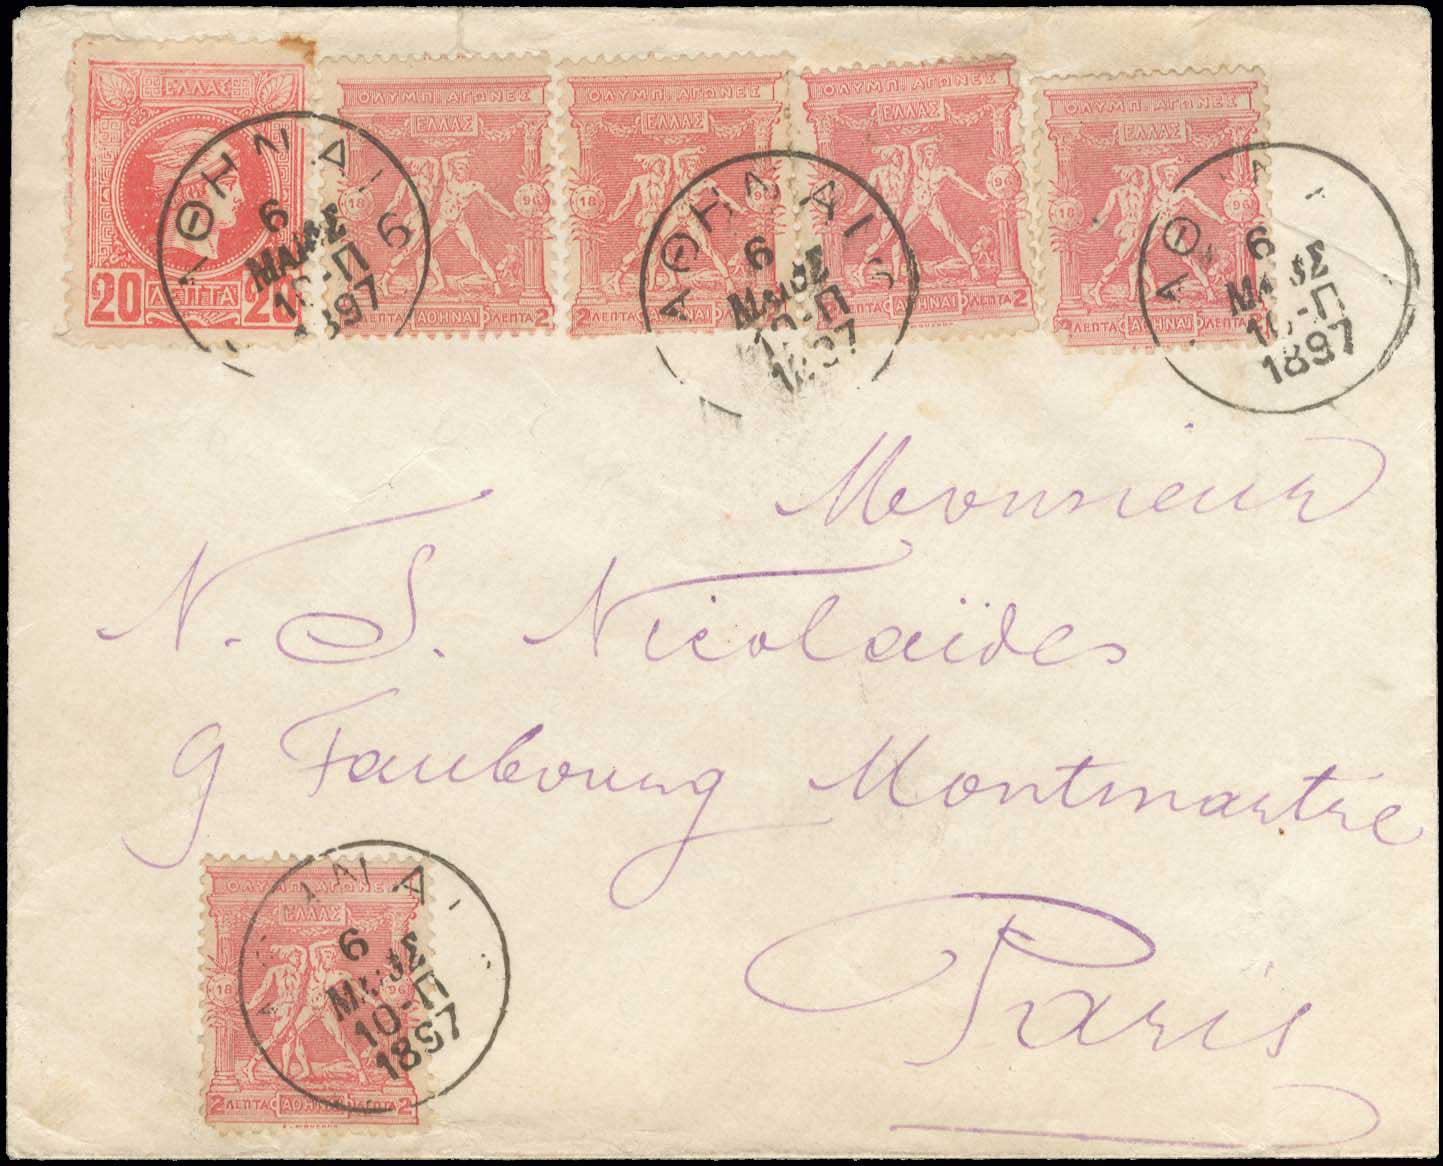 ΕΛΛΑΣ
20 ΛΕΠΤΑ 20
ΟΛΥΜΠ. ΑΓΩΝΕΣ
ΕΛΛΑΣ
18 96
ΛΕΠΤΑ ΑΘΗΝΑΙ ΛΕΠΤΑ 2
ΟΛΥΜΠ. ΑΓΩΝΕΣ
ΕΛΛΑΣ
18 96
2 ΛΕΠΤΑ ΑΘΗΝΑΙ
ΟΛΥΜΠ. ΑΓΩΝΕΣ
ΕΛΛΑΣ
18 96
ΑΘΗΝΑΙ ΛΕΠΤΑ 2
ΟΛΥΜΠ. ΑΓΩΝΕΣ
ΕΛΛΑΣ
18 96
2 ΛΕΠΤΑ ΑΘΗΝΑΙ ΛΕΠΤΑ 2
ΑΘΗΝΑΙ 6
6
ΜΑΡΣ
10-Π
1897
ΑΘΗΝΑΙ
6
ΜΑΡΣ
10-Π
1897
ΑΘ
6
ΜΑΡΣ
10-Π
1897
Monsieur
N. S. Nicolaïdes
9 Faubourg Montmartre
Paris
ΟΛΥΜΠ. ΑΓΩΝΕΣ
ΕΛΛΑΣ
18 96
2 ΛΕΠΤΑ ΑΘΗΝΑΙ ΛΕΠΤΑ 2
6
ΜΑΡΣ
10-Π
1897